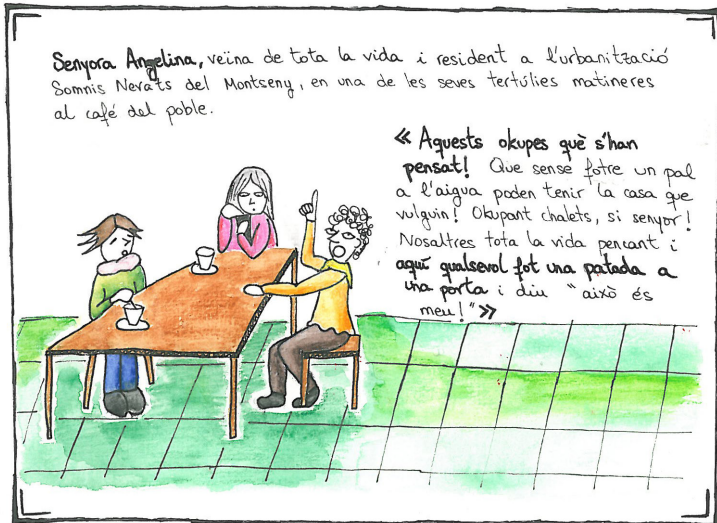 Senyora Angelina, veïna de tota la vida i resident a l'urbanització
Somnis Nevats del Montseny, en una de les seves tertúlies matineres
al café del poble.
« Aquests okupes què s'han
pensat! Que sense fotre un pal
a l'aigua poden tenir la casa que
vulguin! Okupant chalets, si senyor!
Nosaltres tota la vida pencant i
aquí qualsevol fot una patada a
una porta i diu "això és
meu!" »